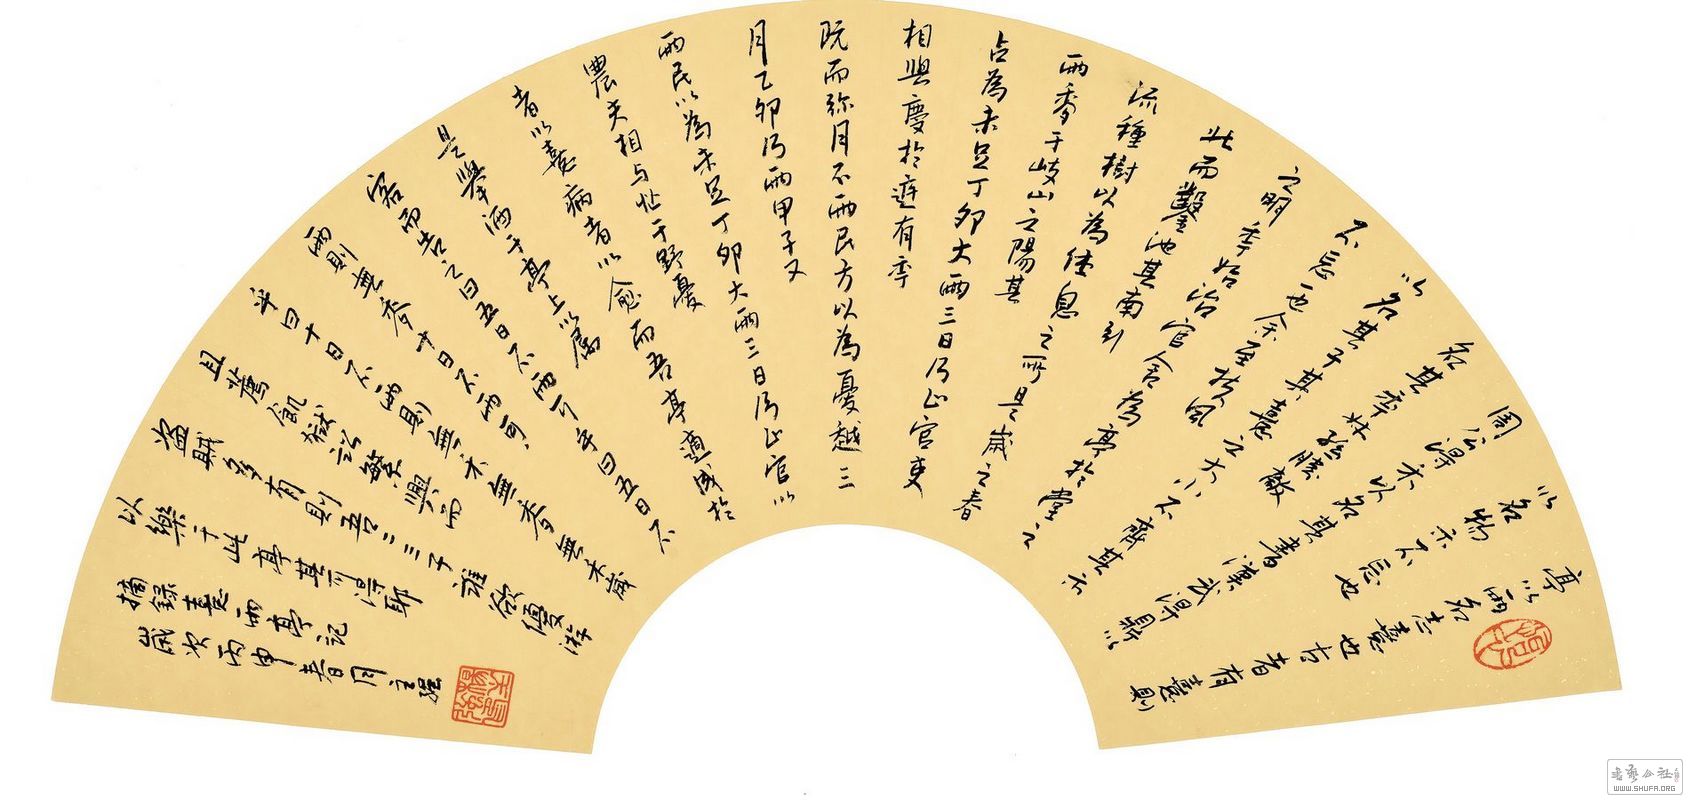 亭以雨名志喜也古者有喜則
以名物示不忘也
周公得禾以名其書漢武得鼎以
名其年叔孫勝敵
以名其子其喜之大小不齊其示
不忘也余至扶風
之明年始治官舍為亭於堂之
北而鑿池其南引
流種樹以為休息之所是歲之春
雨麥于岐山之陽其
占為未足丁卯大雨三日乃止官吏
相與慶於庭有年
既而弥月不雨民方以為憂越三
月乙卯乃雨甲子又
雨民以為未足丁卯大雨三日乃止官以
農夫相与忭于野憂
者以喜病者以愈而吾亭適成於
是舉酒于亭上以屬
客而告之曰五日不雨可乎曰五日不
雨則無麥十日不雨可
乎曰十日不雨則無禾無麥無禾歲
且薦飢獄訟繁興而
盜賊多有則吾二三子雖欲優游
以樂于此亭其可得耶
摘録喜雨亭記
歲次丙申春月
WWW.SHUFA.ORG